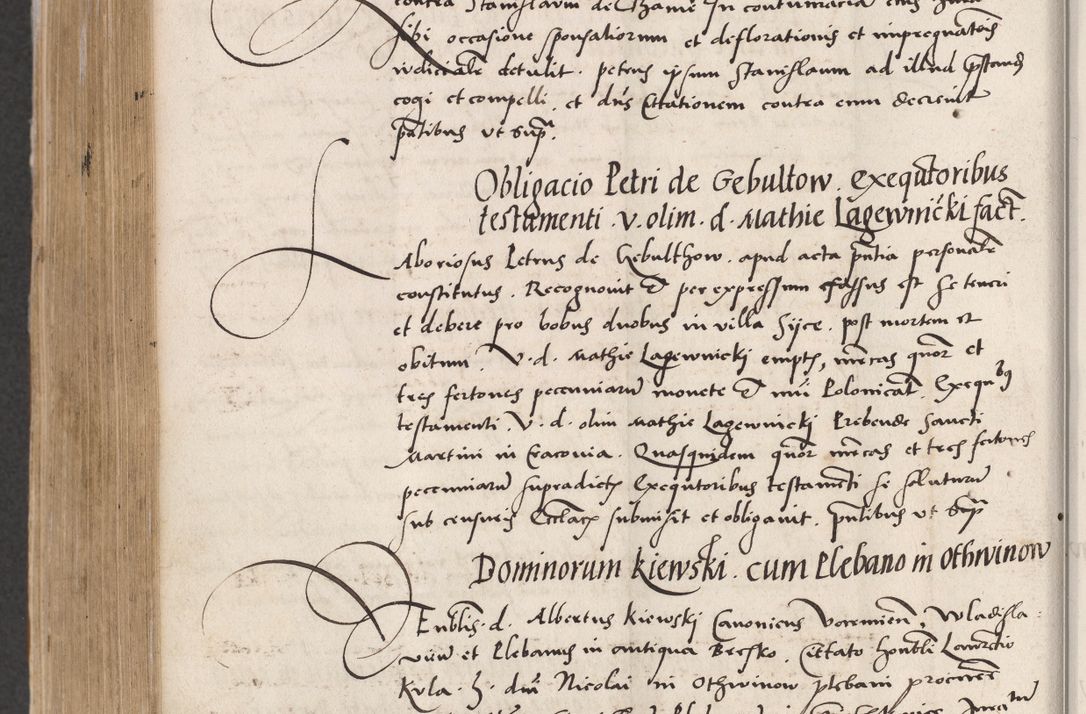 contra Stanislaum de
sibi occasione sponsaliorum et deflorationis et impregnatōis
detulit. petens ipsum Stanislaum ad illud
cogi et compelli. et dn̄s Citationem contra eum decrevit
pn̄tibus ut supa.
Obligacio Petri de Gebultow. exequtoribus
testamenti. v. olim. d. Mathie Lagewnicki fact.
Laboriosus Petrus de Gebulthow. apud acta pn̄tia personalr̄
constitutus. Recognovit et per expressum fassus est se teneri
et debere pro bobus duobus in villa Syce. post mortem et
obitum. V. d. Mathie Lagewnickj empt, mr̄cas quōr et
tres fertones pecuniarū monete et nūi Polonicalt. Exequbus
testamenti. V. d. olim Mathie Lagewnickj Prebende Sancti
Martini in Cracovia. Quasquidem quōr mr̄cas et tres fertones
pecuniarū supradict Exequtoribus testamēti se soluturū
sub censuris Ecclāc submisit et obligavit. pn̄libus ut sup
Dominorum Kiewski. cum Plebano in Othwinow
Venblīs. d. Albertus Kiewskj Canonicus Varmien, Wladisla-
viēn et Plebanus in antiqua Bresko. Citato honblī Laurētio
Kula. h. dnī Nicolai in Othwinow plebani